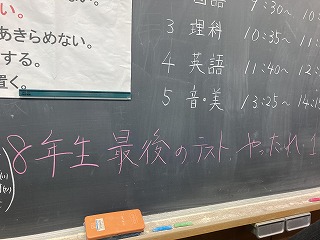 い。
あきらめない。
する。
置く。
国語 9:30~ 10
3 理科 10:35~ 11
4 英語 11:40~ 12
5 音・美 13:25~ 14:1
8年生 最後のテスト、やったれ